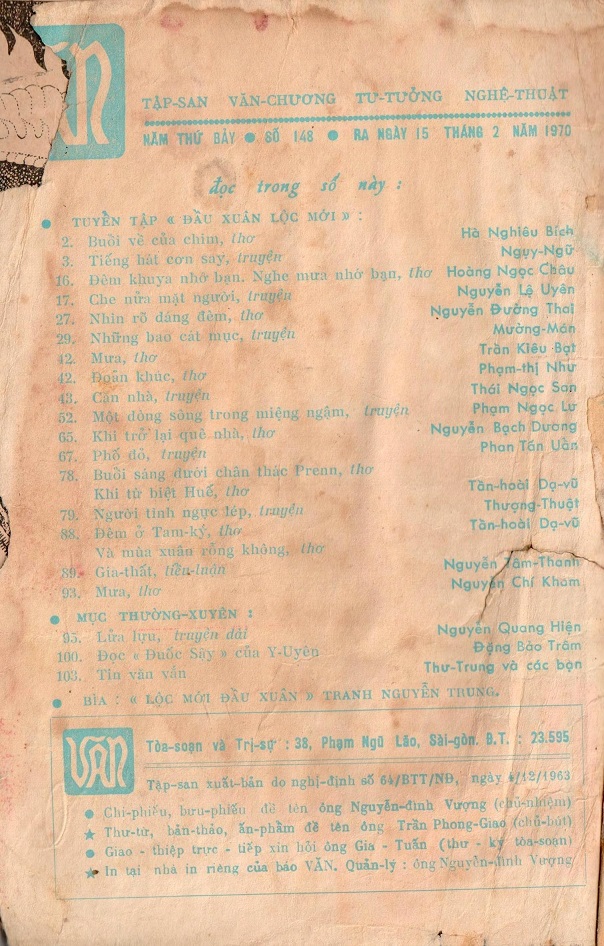 VĂN
TẬP-SAN VĂN-CHƯƠNG TƯ-TƯỞNG NGHỆ-THUẬT
NĂM THỨ BẢY ● SỐ 148 ● RA NGÀY 15 THÁNG 2 NĂM 1970
đọc trong số này :
● TUYỂN TẬP « ĐẦU XUÂN LỘC MỚI » :
2. Buổi về của chim, thơ Hà Nghiêu Bích
3. Tiếng hát cơn say, truyện Ngụy-Ngữ
16. Đêm khuya nhớ bạn. Nghe mưa nhớ bạn, thơ Hoàng Ngọc Châu
17. Che nửa mặt người, truyện Nguyễn Lệ Uyên
27. Nhìn rõ dáng đêm, thơ Nguyễn Đường Thai
29. Những bao cát mục, truyện Mường-Mán
42. Mưa, thơ Trần Kiêu Bạt
42. Đoản khúc, thơ Phạm-thị Như
43. Căn nhà, truyện Thái Ngọc San
52. Một dòng sông trong miệng ngậm, truyện Phạm Ngọc Lư
65. Khi trở lại quê nhà, thơ Nguyễn Bạch Dương
67. Phố đỏ, truyện Phan Tấn Uẩn
78. Buổi sáng dưới chân thác Prenn, thơ
Khi từ biệt Huế, thơ Tần-hoài Dạ-vũ
79. Người tình ngực lép, truyện Thượng-Thuật
88. Đêm ở Tam-kỳ, thơ Tần-hoài Dạ-vũ
Và mùa xuân rỗng không, thơ
89. Gia-thất, tiền-luận Nguyễn Tâm-Thanh
93. Mưa, thơ Nguyễn Chí Kham
● MỤC THƯỜNG-XUYÊN :
95. Lửa lựu, truyện dài Nguyễn Quang Hiện
100. Đọc « Đuốc Sậy » của Y-Uyên Đặng Bảo Trâm
103. Tin văn vắn Thư-Trung và các bạn
● BÌA : « LỘC MỚI ĐẦU XUÂN » TRANH NGUYỄN TRUNG.
VĂN
Tòa-soạn và Trị-sự : 38, Phạm Ngũ Lão, Sài-gòn. Đ.T. : 23.595
Tập-san xuất-bản do nghị-định số 64/BTT/NĐ, ngày /12/1963
● Chi-phiếu, bưu-phiếu đề tên ông Nguyễn-đình Vượng (chủ-nhiệm)
★ Thư-từ, bản-thảo, ấn-phẩm đề tên ông Trần Phong-Giao (chủ-bút)
● Giao - thiệp trực - tiếp xin hỏi ông Gia - Tuấn (thư - ký tòa-soạn)
★ In tại nhà in riêng của báo VĂN. Quản-lý : ông Nguyễn-đình Vượng